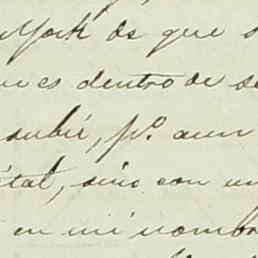 York de que
es dentro de
subir, p.º aun
ital, sino con un
en mi nombr